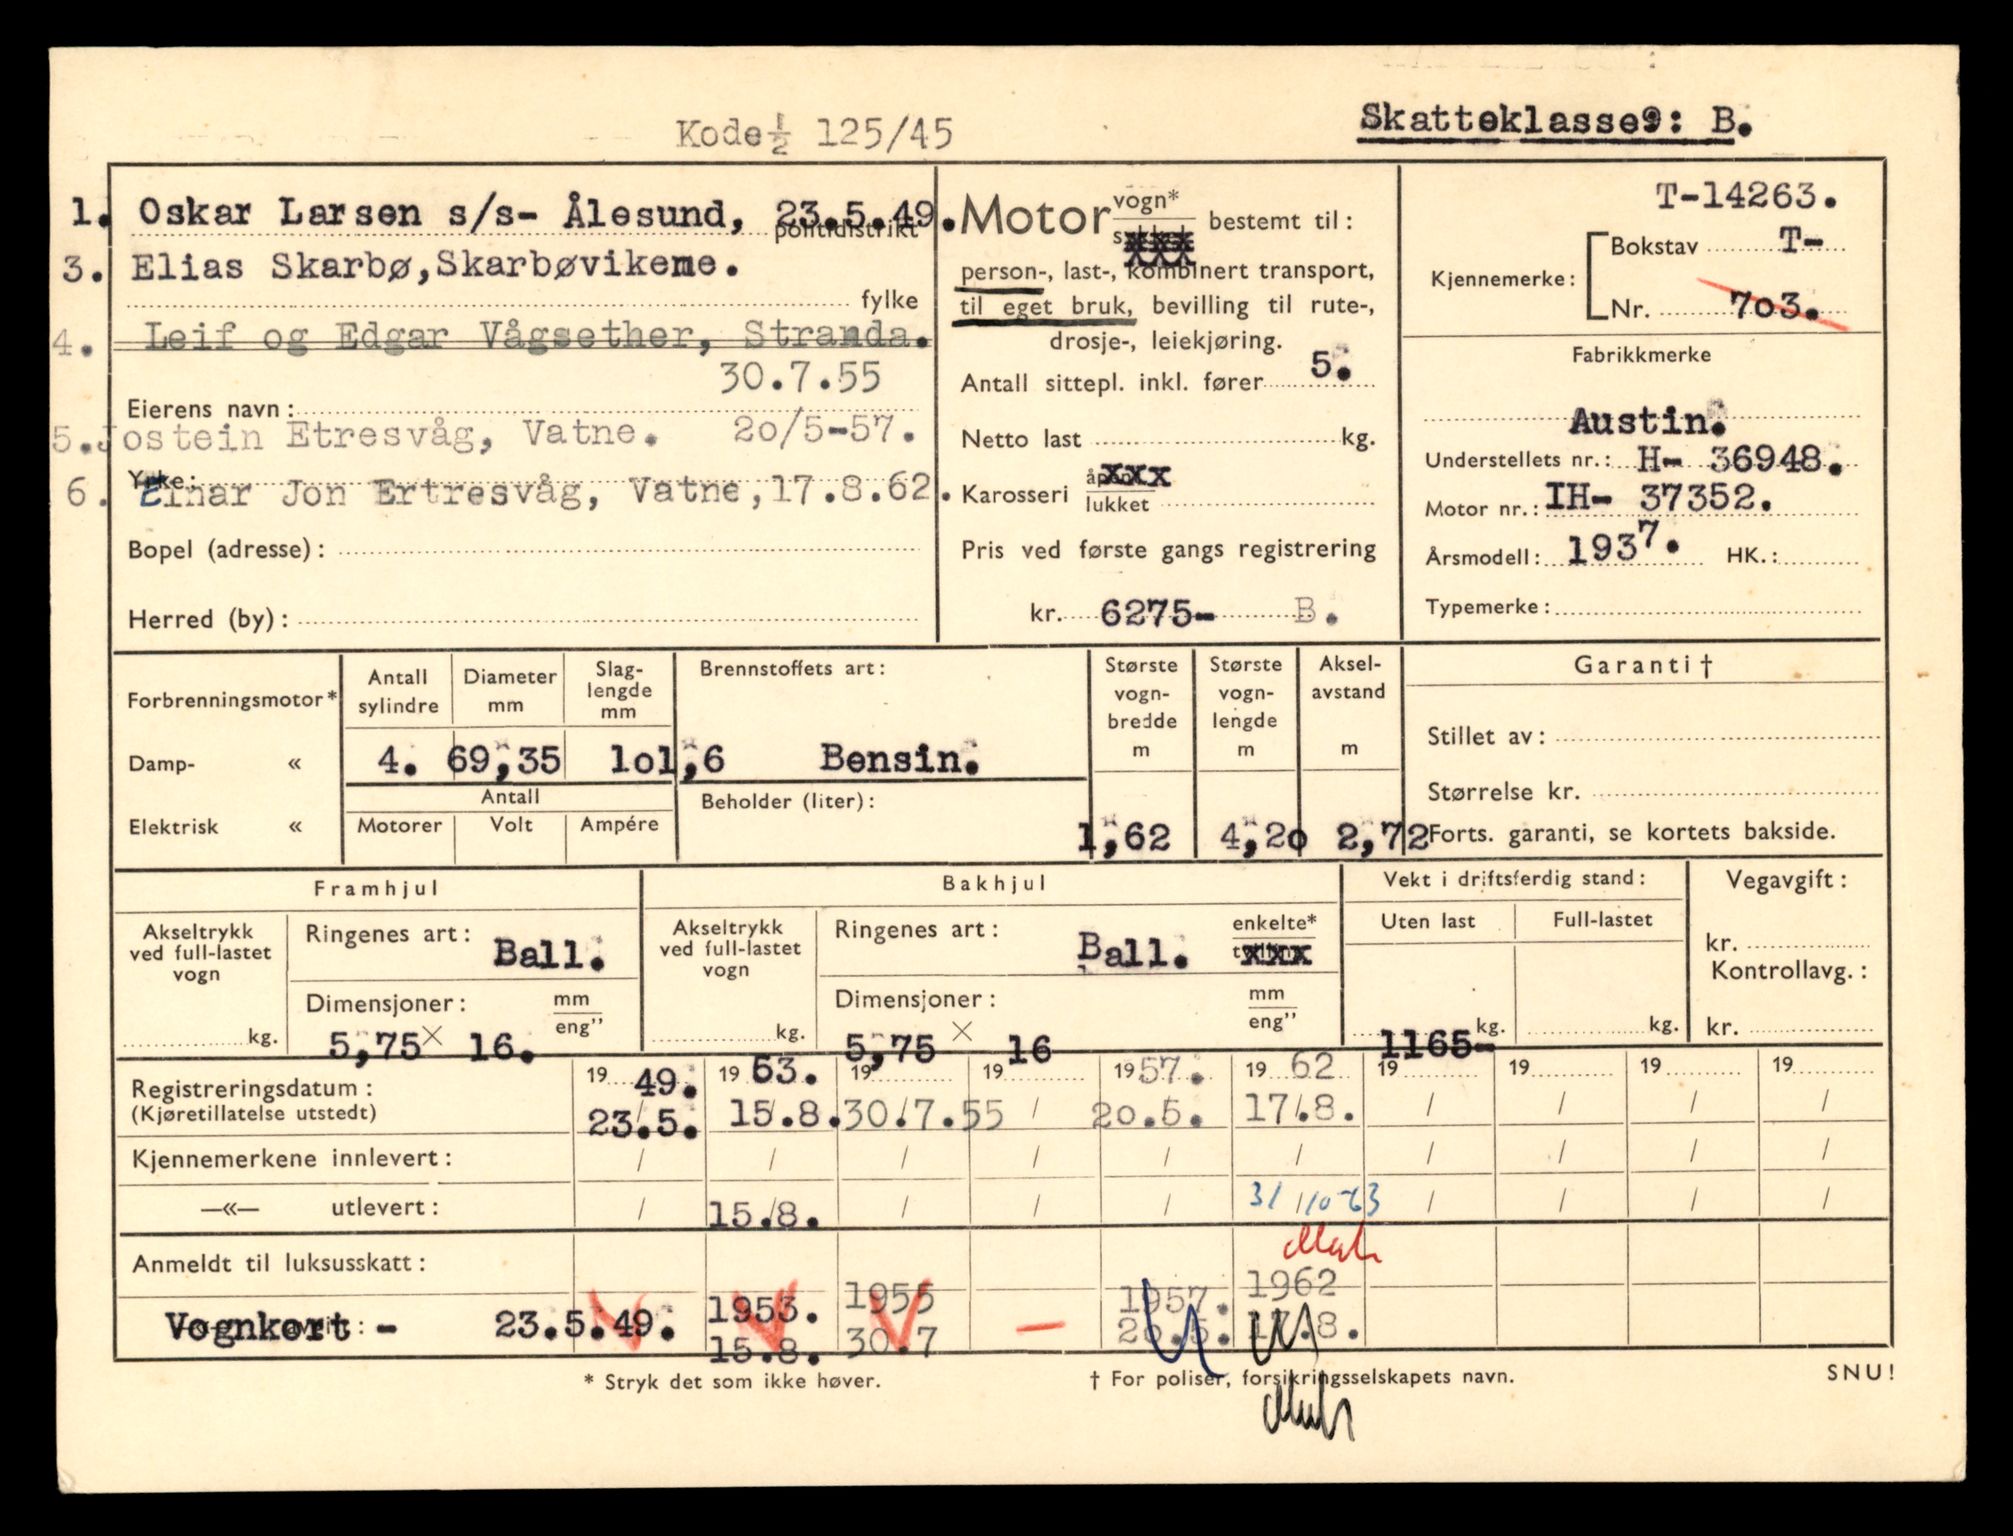 Kode ½ 125/45
Skatteklasse9: B.
1. Oskar Larsen s/s- Ålesund, 23.5.49.
politidistrikt
3. Elias Skarbø, Skarbøvikene.
fylke
4. Leif og Edgar Vågsether, Stranda.
30.7.55
Eierens navn:
5. Jostein Etresvåg, Vatne. 20/5-57.
Yrke:
6. Einar Jon Ertresvåg, Vatne, 17.8.62.
Bopel (adresse):
Herred (by):
Motor vogn* bestemt til:
xxx
person-, last-, kombinert transport,
til eget bruk, bevilling til rute-,
drosje-, leiekjøring.
Antall sittepl. inkl. fører 5.
Netto last kg.
Karosseri xxx lukket
Pris ved første gangs registrering
kr. 6275- B.
T-14263.
Kjennemerke: Bokstav T-
Nr. 703.
Fabrikkmerke
Austin.
Understellets nr.: H- 36948.
Motor nr.: IH- 37352.
Årsmodell: 1937. HK.:
Typemerke:
Forbrenningsmotor*
Damp- «
Elektrisk «
Antall sylindre
Diameter mm
Slag-lengde mm
4. 69,35 101,6
Antall
Motorer Volt Ampére
Brennstoffets art:
Bensin.
Beholder (liter):
Største vogn-bredde m
Største vogn-lengde m
Aksel-avstand m
1,62 4,20 2,72
Garanti †
Stillet av:
Størrelse kr.
Forts. garanti, se kortets bakside.
Framhjul
Akseltrykk ved full-lastet vogn
kg.
Ringenes art: Ball.
Dimensjoner: mm eng”
5,75 × 16.
Bakhjul
Akseltrykk ved full-lastet vogn
kg.
Ringenes art: Ball. enkelte* xxx
Dimensjoner: mm eng”
5,75 × 16
Vekt i driftsferdig stand:
Uten last Full-lastet
1165- kg. kg.
Vegavgift:
kr.
Kontrollavg.:
kr.
Registreringsdatum: 19 49. 19 53. 19 19 19 57. 19 62 19 19 19 19
(Kjøretillatelse utstedt) 23.5. 15.8. 30.7.55 / 20.5. 17.8. / / / /
Kjennemerkene innlevert: / / / / / / / / / /
—«— utlevert: / 15.8. / / / 31/10-63 / / / /
Anmeldt til luksusskatt:
1953. 1955 1957. 1962
Vognkort - 23.5.49. 15.8. 30.7 — 20.5. 17.8.
* Stryk det som ikke høver.
† For poliser, forsikringsselskapets navn.
SNU!